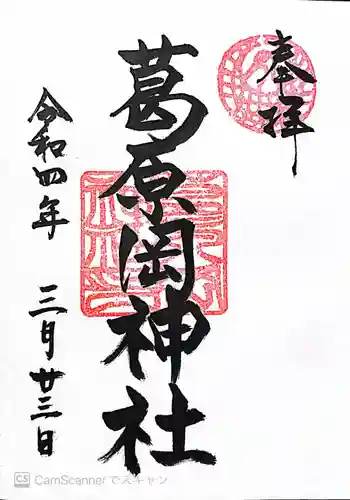 奉拝
葛原岡神社
令和四年 三月廿三日
CS CamScannerでスキャン